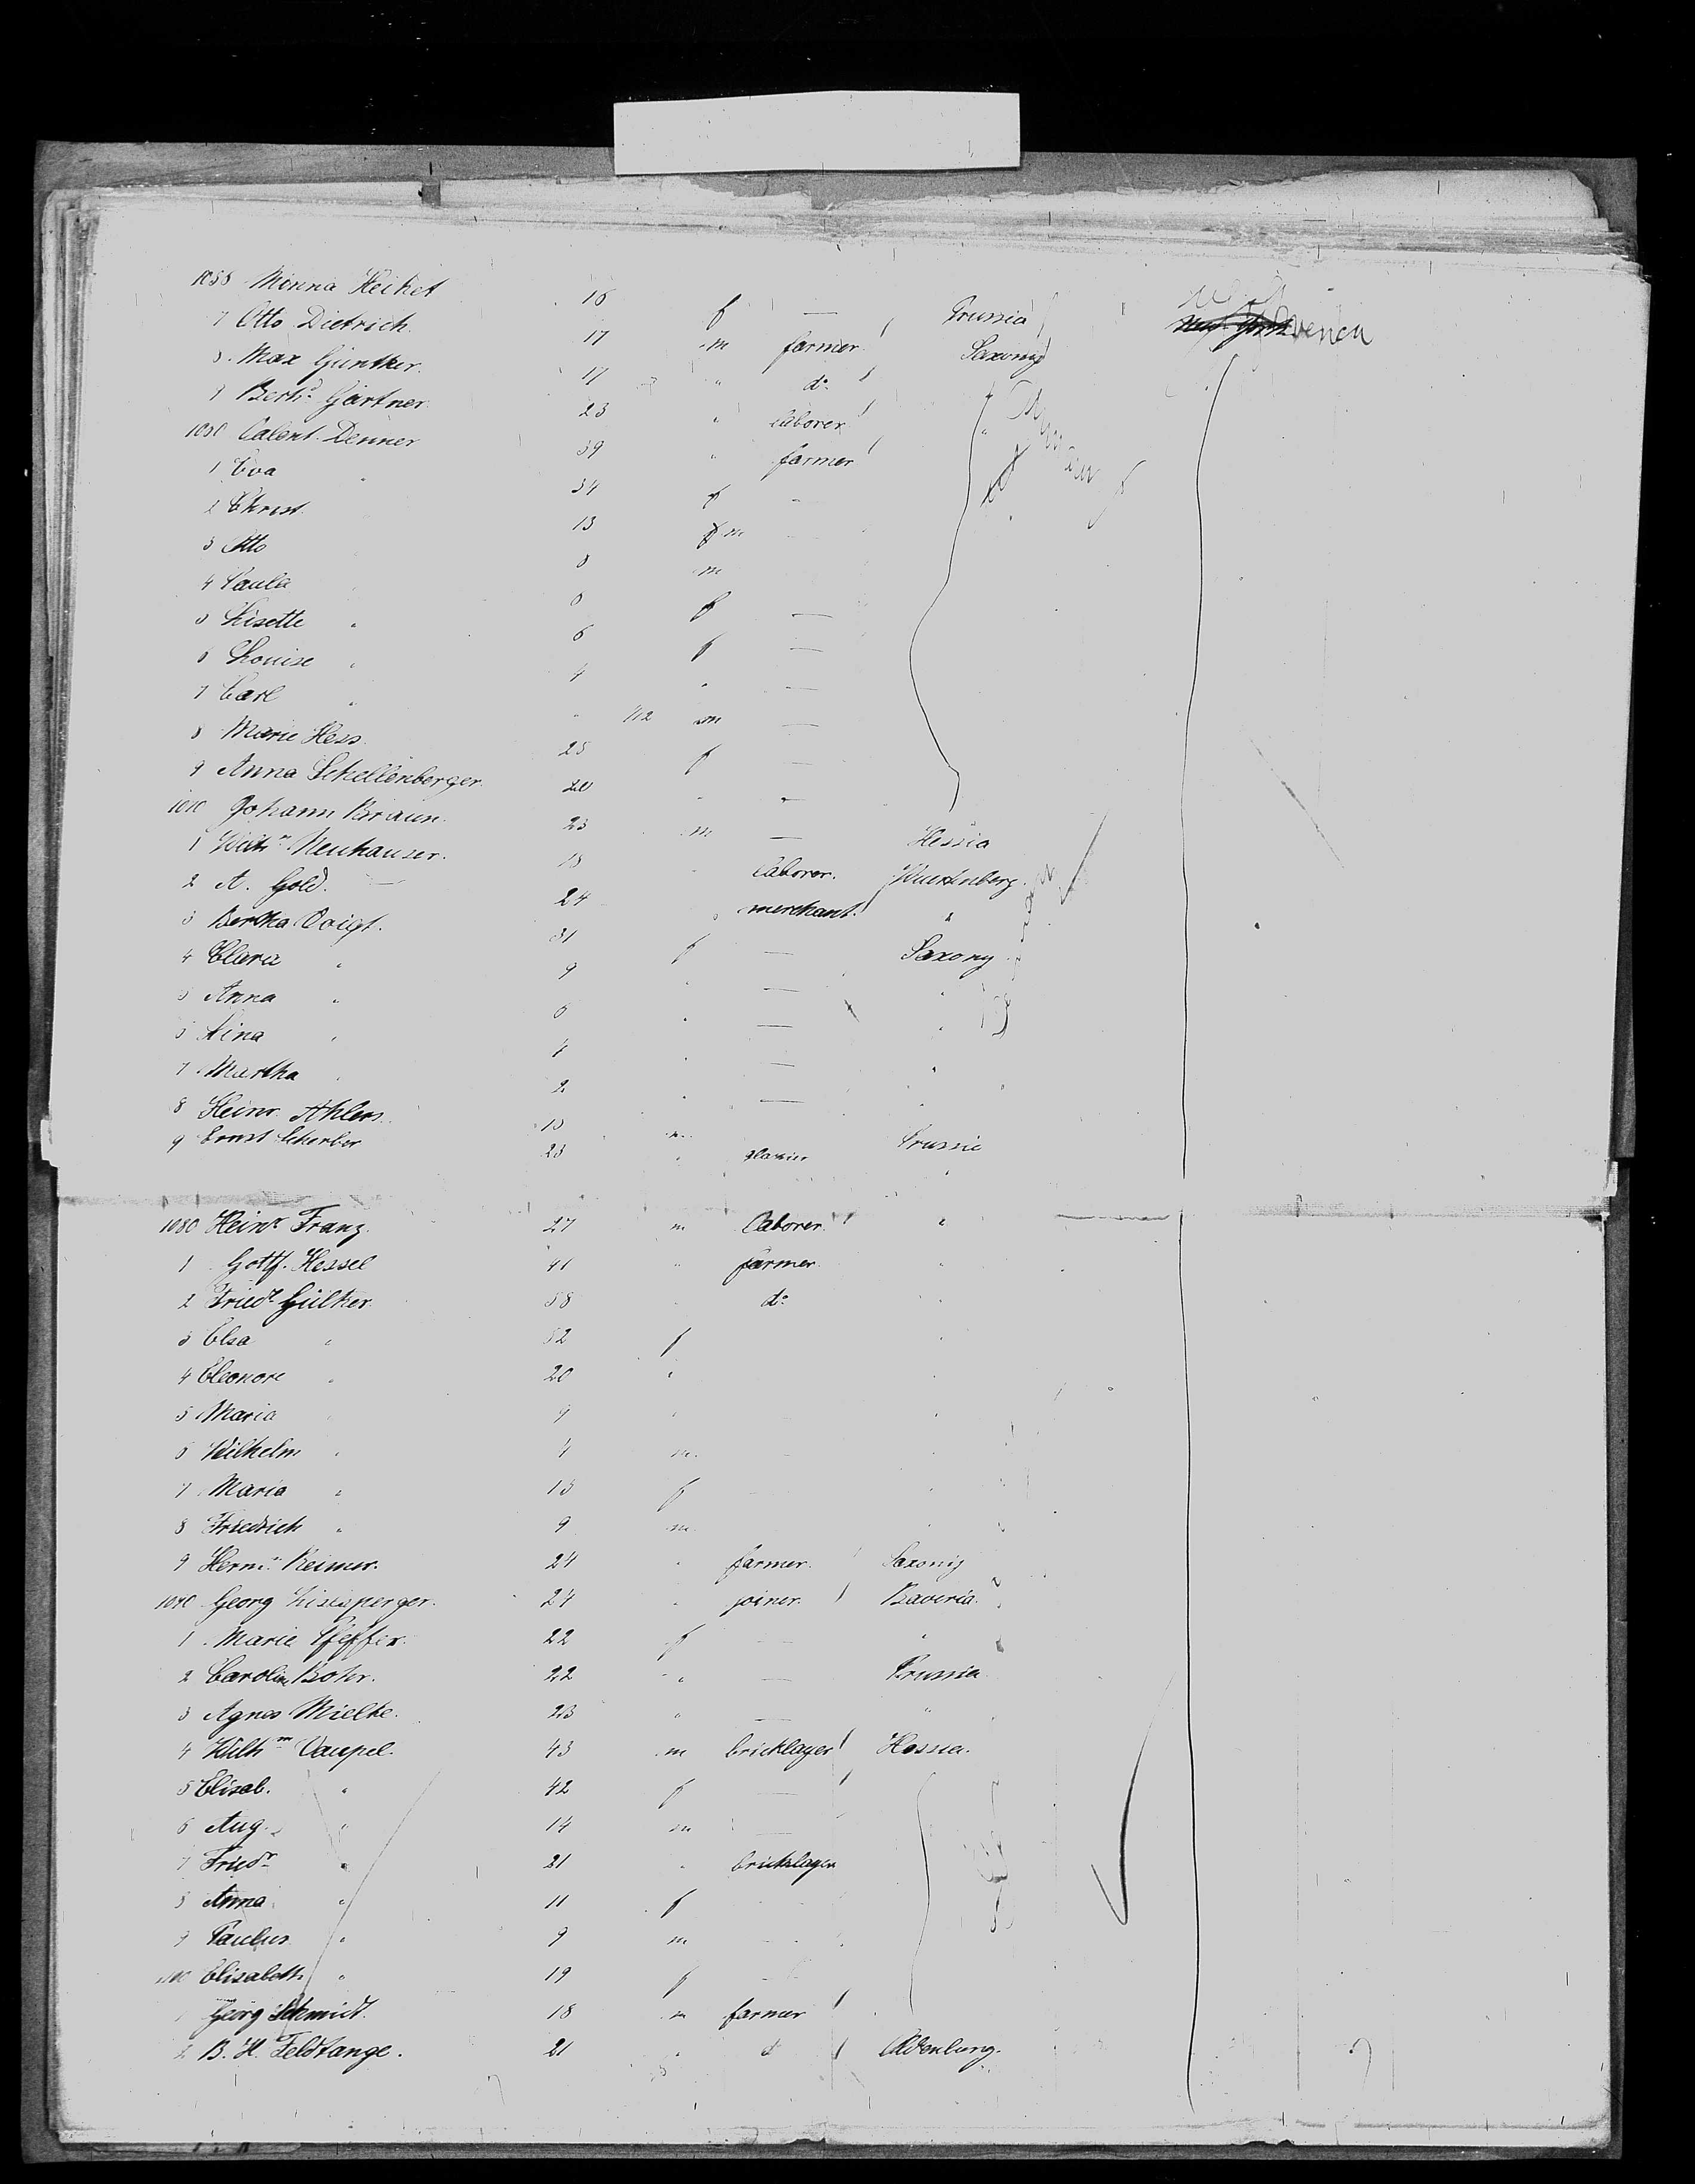 Minna Heikel 16 f — Prussia
7 Otto Dietrich. 17 m farmer Saxony
Max Günther. 17 " do
9 Berthd Gärtner. 23 " laborer "
Valent. Denner 39 " farmer
1 Eva " 34 f
2 Christ. 13 m
3 Otto 8 m
4 Paula f —
Lisette " 6 f —
6 Louise " 4 " —
7 Carl " " m —
8 Marie Hess. 25 f —
9 Anna Schellenberger. 20 " "
Johann Braun. 23 m — Hessia
1 Wilhm Neuhauser. 18 laborer. Wurtenberg.
2 A. Gold. — 24 " merchant. "
3 Bertha Voigt. 31 f — Saxony
4 Clara " 9 " — "
5 Anna " 6 " — "
Lina " 4 " — "
7 Martha " 2 " — "
8 Heinr. Ahlers. m. Prussia
9 Ernst Scherber 23 " "
1080 Heinr Franz. 27 m laborer. "
1 Gottf. Hessel 41 " farmer. "
2 Friedr Gülker. 58 " do "
3 Elsa " 52 f "
4 Eleonore " 20 " "
5 Maria " 9 " "
6 Wilhelm " 4 m. "
7 Maria " 13 f "
8 Friedrich " 9 m. "
9 Hermn Reimer. 24 " farmer. Saxony
1090 Georg 24 " joiner. Bavaria.
1 Marie Pfeffer. 22 f — "
2 Caroline Bohr. 22 " — Prussia
3 Agnes Mielke. 23 " — "
4 Wilhm Vaupel. 43 m bricklayer Hessia.
5 Elisab. " 42 f —
6 Aug. " 14 m —
7 Friedr " 21 " bricklayer
8 Anna " 11 f
9 Paulus " 9 m
1100 Elisabeth " 19 f
Georg Schmidt. 18 m farmer
2 B. H. Feldtange. 21 " d Oldenburg.